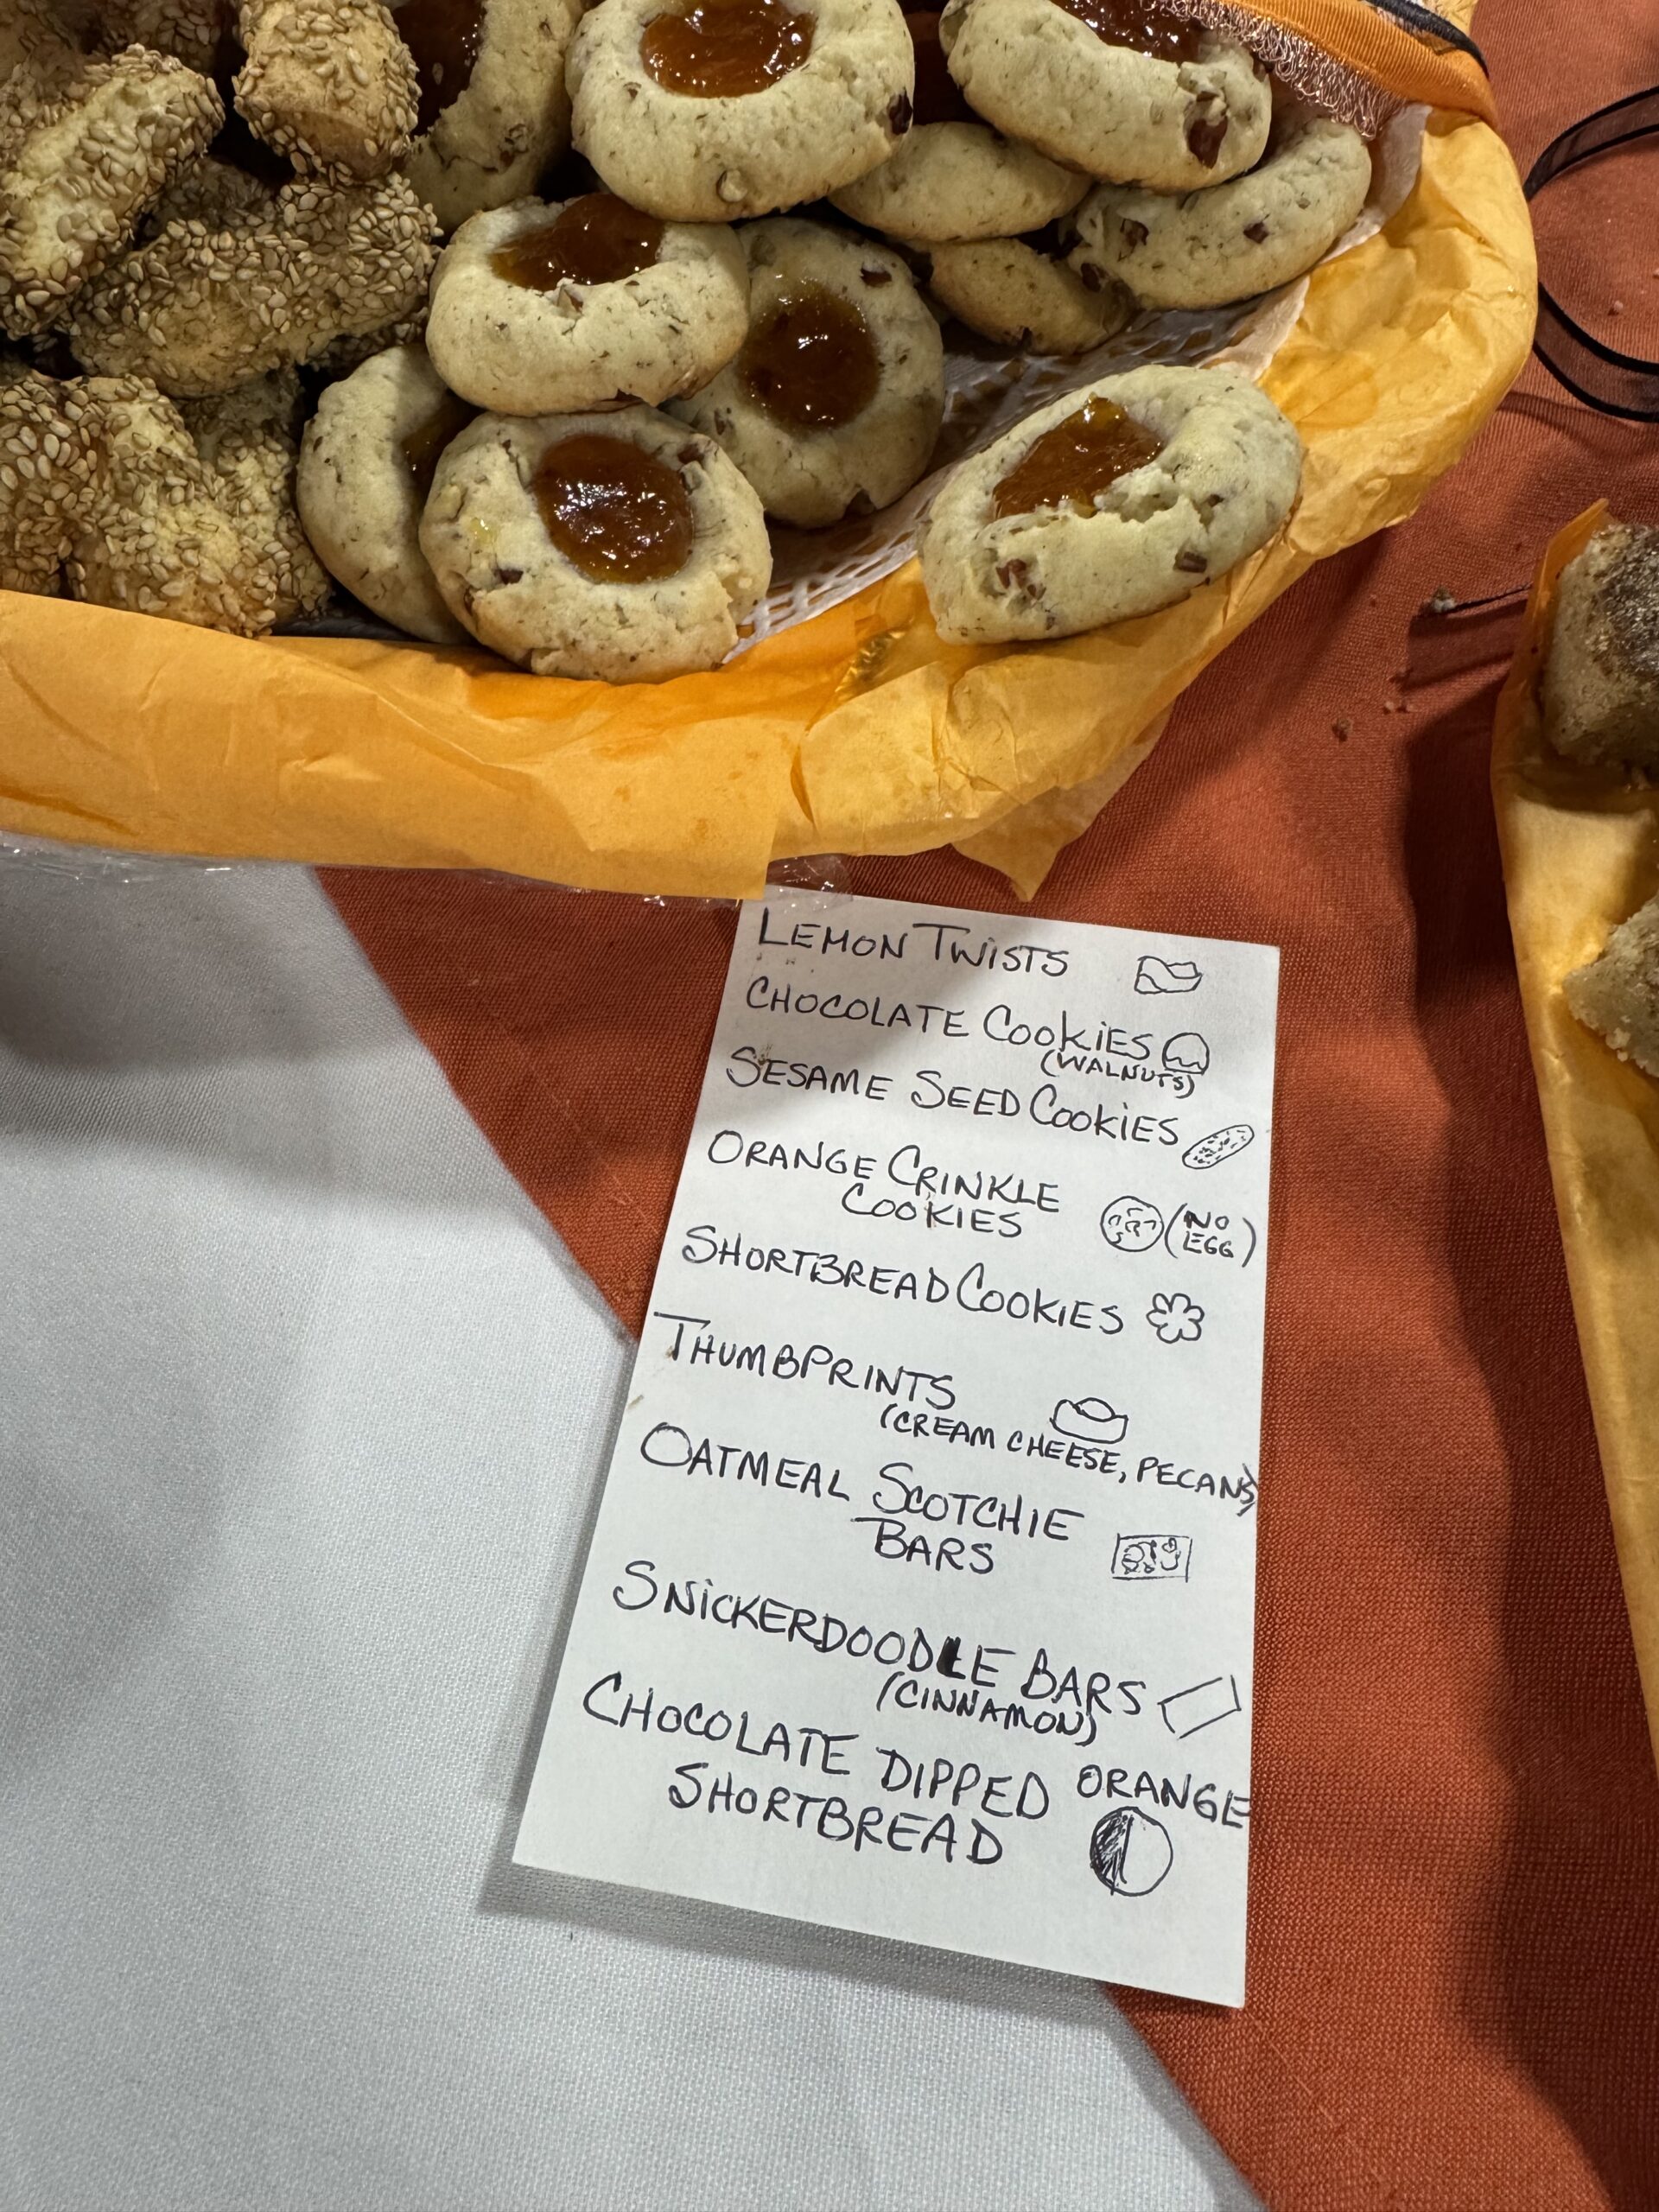 LEMON TWISTS
CHOCOLATE COOKIES
(WALNUTS)
SESAME SEED COOKIES
ORANGE CRINKLE
COOKIES
(NO
EGG)
SHORTBREAD COOKIES
THUMBPRINTS
(CREAM CHEESE, PECANS)
OATMEAL SCOTCHIE
BARS
SNICKERDOODLE BARS
(CINNAMON)
CHOCOLATE DIPPED ORANGE
SHORTBREAD